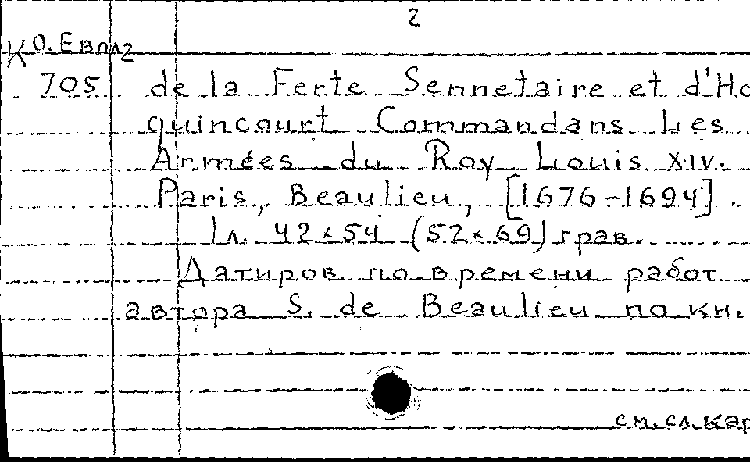 2
К О. Евпл2
705 de la Ferte Sennetaire et d'Ho
quincourt Commandans Les
Armées du Roy Louis XIV.
Paris, Beaulieu, [1676-1694].
1 л. 42×54 (52×69) грав.
Датиров. по времени работ
автора S. de Beaulieu по кн.
см. сл. кар